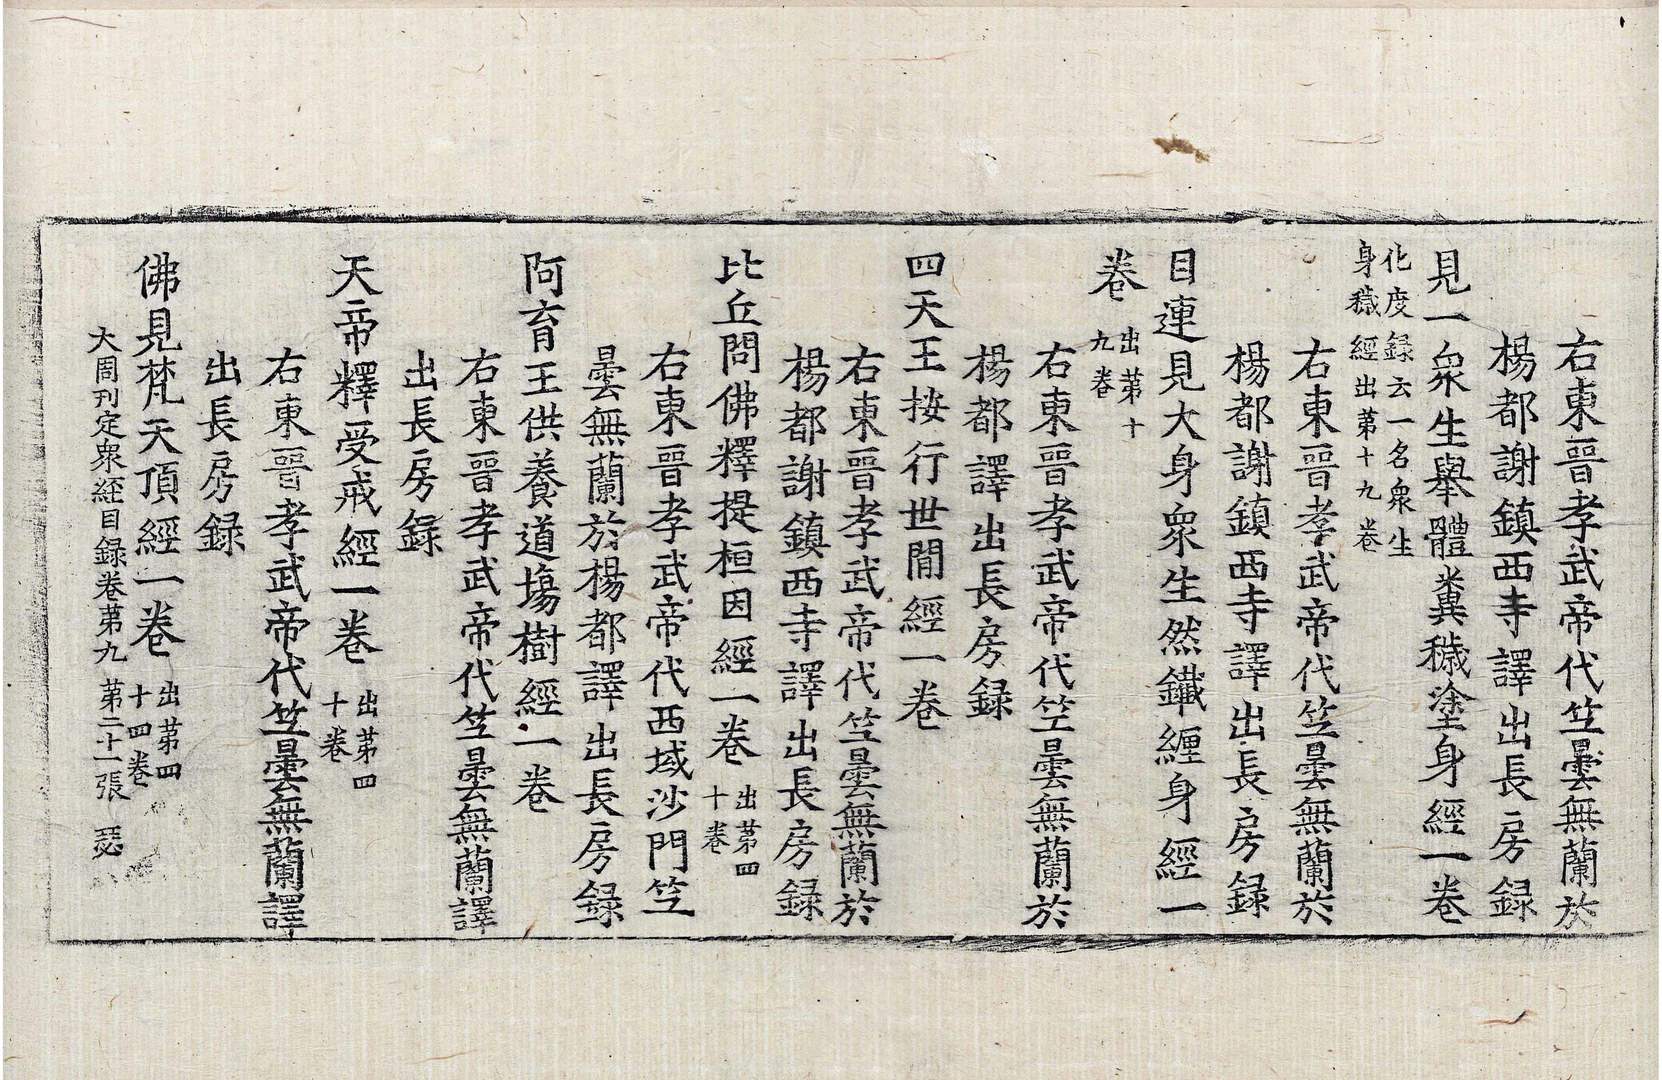 右東晉孝武帝代竺曇無蘭於
楊都謝鎮西寺譯出長房録
見一衆生舉體糞穢塗身經一卷
化度録云一名衆生
身穢經出苐十九卷
右東晉孝武帝代竺曇無蘭於
楊都謝鎮西寺譯出長房録
目連見大身衆生然鐵纏身經一
卷 出苐十
九卷
右東晉孝武帝代竺曇無蘭於
楊都譯出長房録
四天王按行世閒經一卷
右東晉孝武帝代竺曇無蘭於
楊都謝鎮西寺譯出長房録
比丘問佛釋提桓因經一卷 出苐四
十卷
右東晉孝武帝代西域沙門竺
曇無蘭於楊都譯出長房録
阿育王供養道塲樹經一卷
右東晉孝武帝代竺曇無蘭譯
出長房録
天帝釋受戒經一卷 出苐四
十卷
右東晉孝武帝代竺曇無蘭譯
出長房録
佛見梵天頂經一卷 出苐四
十四卷
大周刊定衆經目録卷苐九 第二十一張 瑟